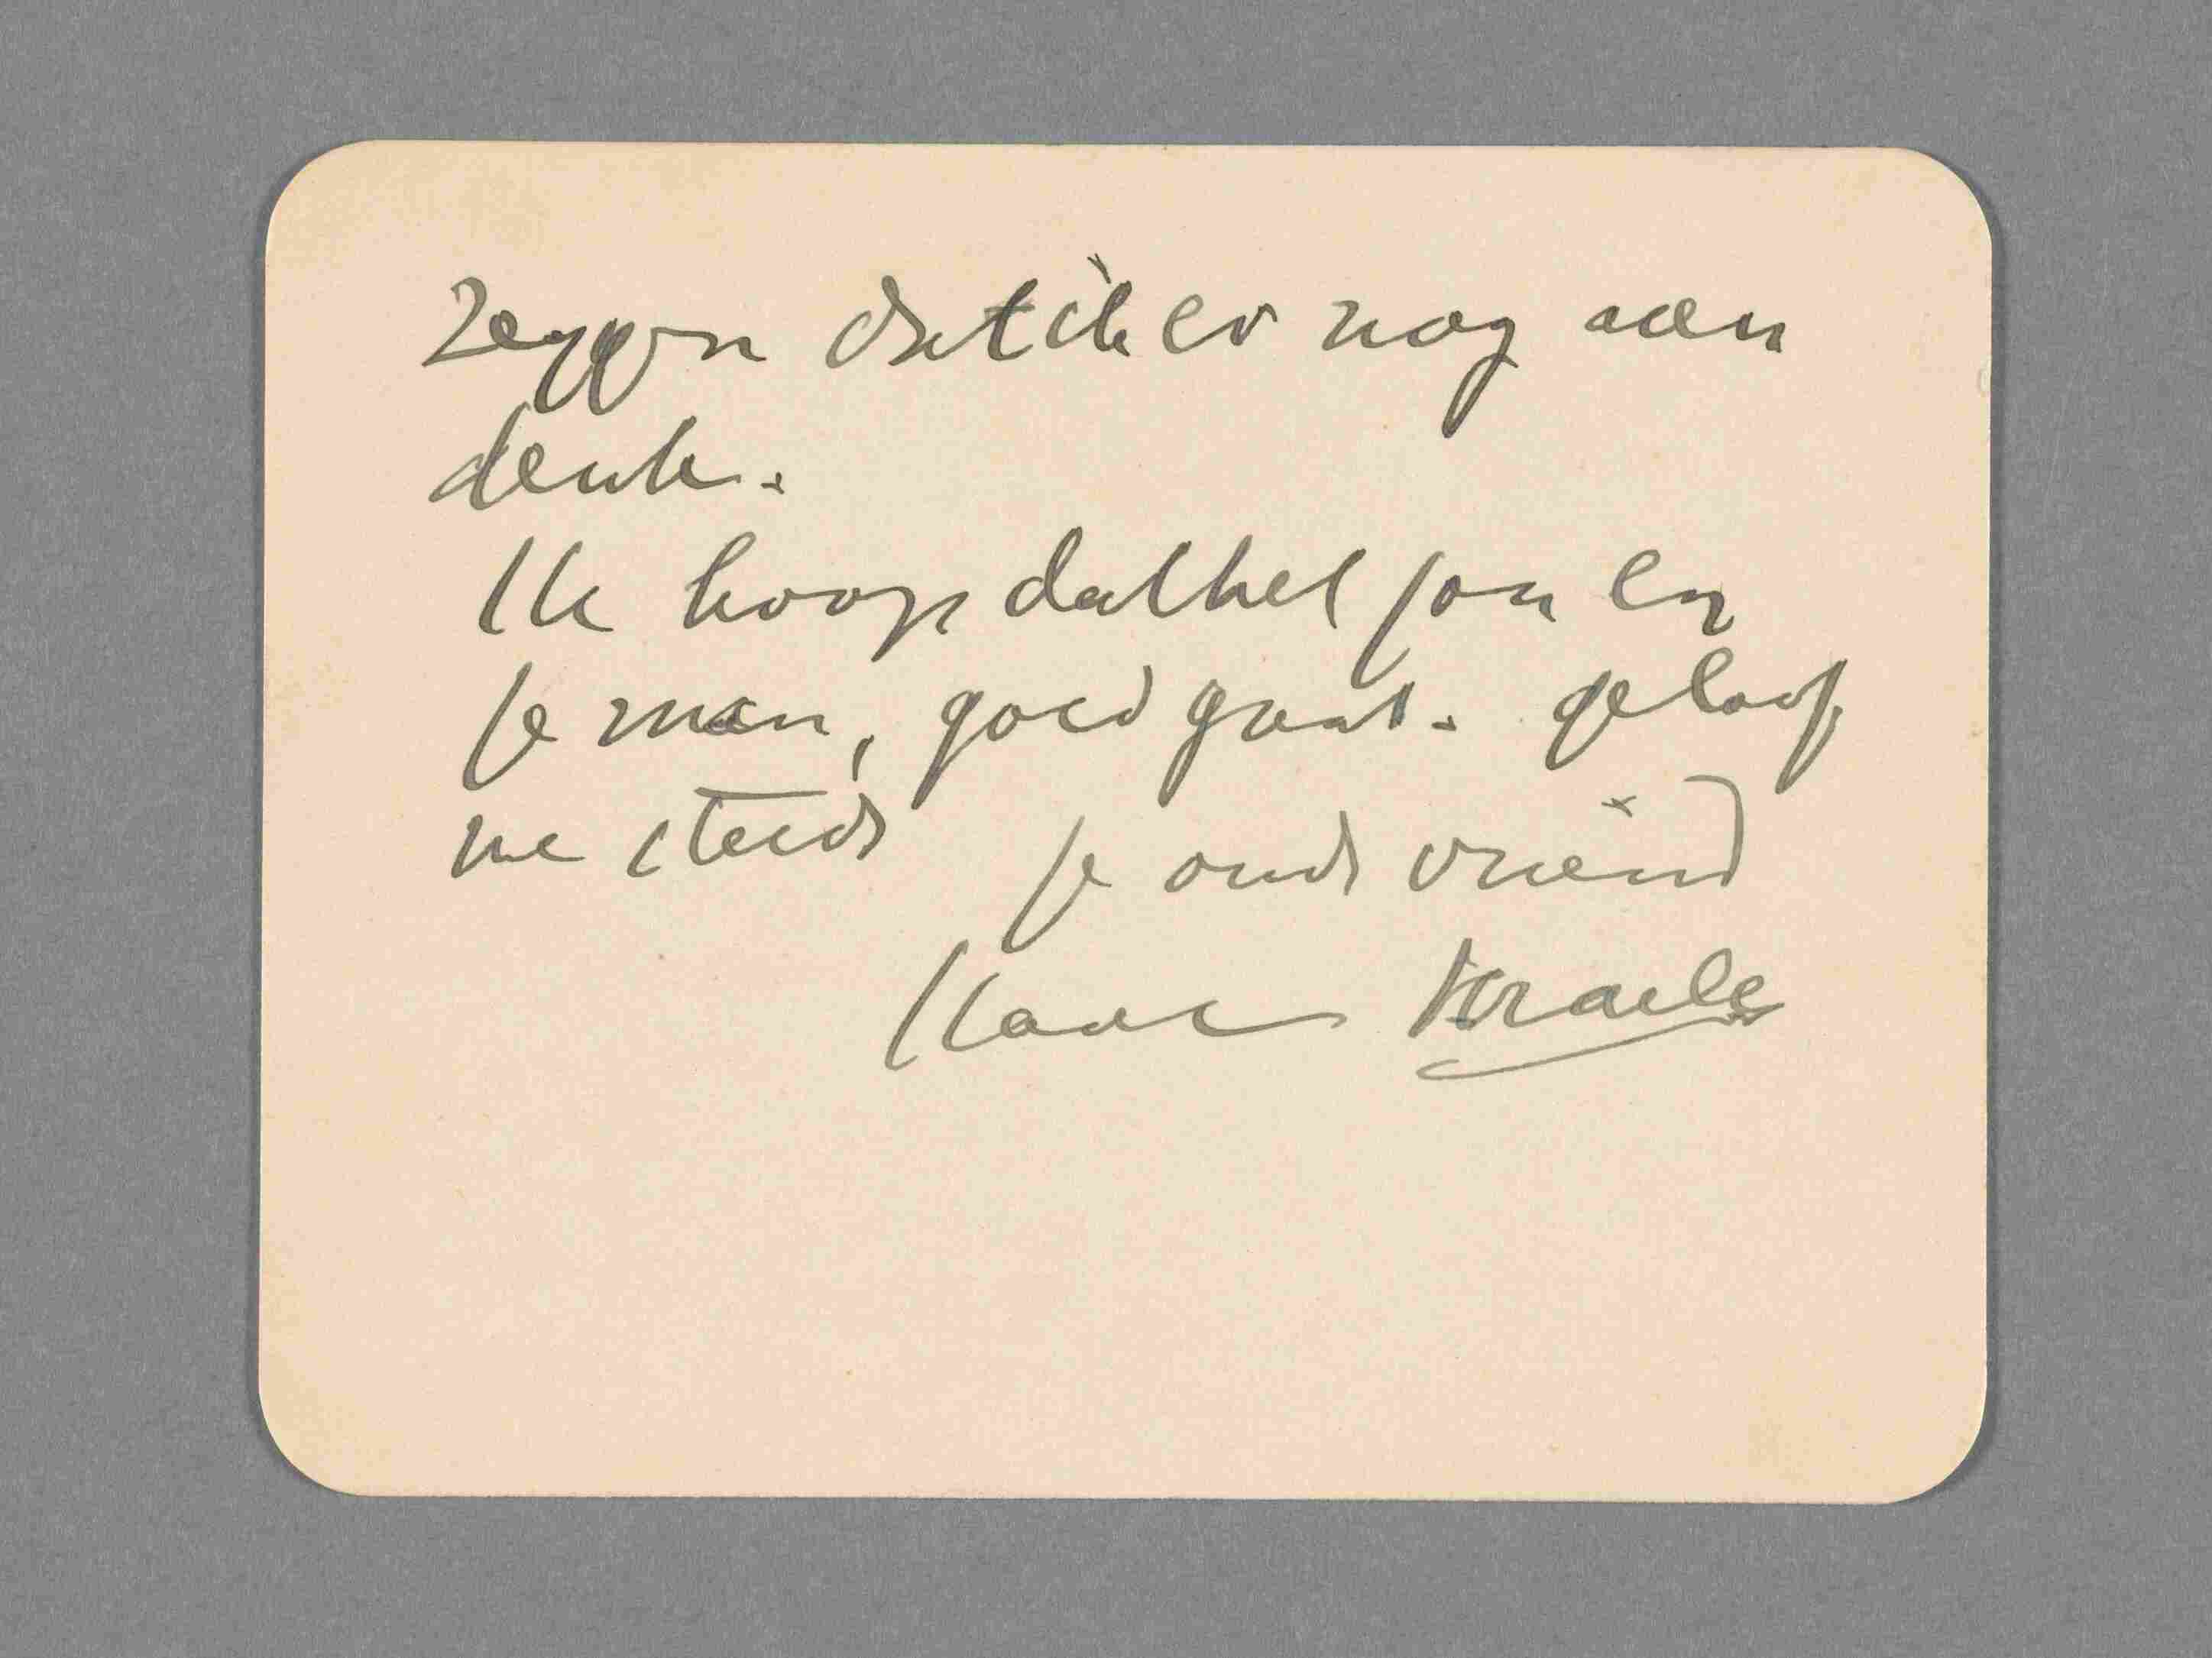 zeggen dat ik er nog aan
denk.
Ik hoop dat het jou en
je man, goed gaat. geloof
me steeds je oude vriend
Isaac Israels